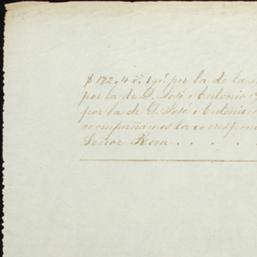 por la de la
por la de D. José Antonio
por la de D. José Antonio
acompañamos la correspon
Señor Roca . . . .